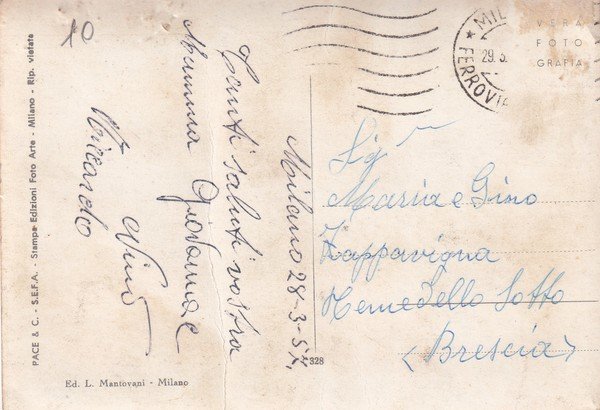 10
Milano 28-3-57.
Tanti saluti vostra
Mamma Giovanna e
Nino
Riccardo
Sig.
Maria e Gino
Zappavigna
Remedello Sotto
(Brescia)
MIL
29.3.
FERROVIA
VERA
FOTO
GRAFIA
328
PACE & C. - S.E.F.A. - Stampa Edizioni Foto Arte - Milano - Rip. vietata
Ed. L. Mantovani - Milano